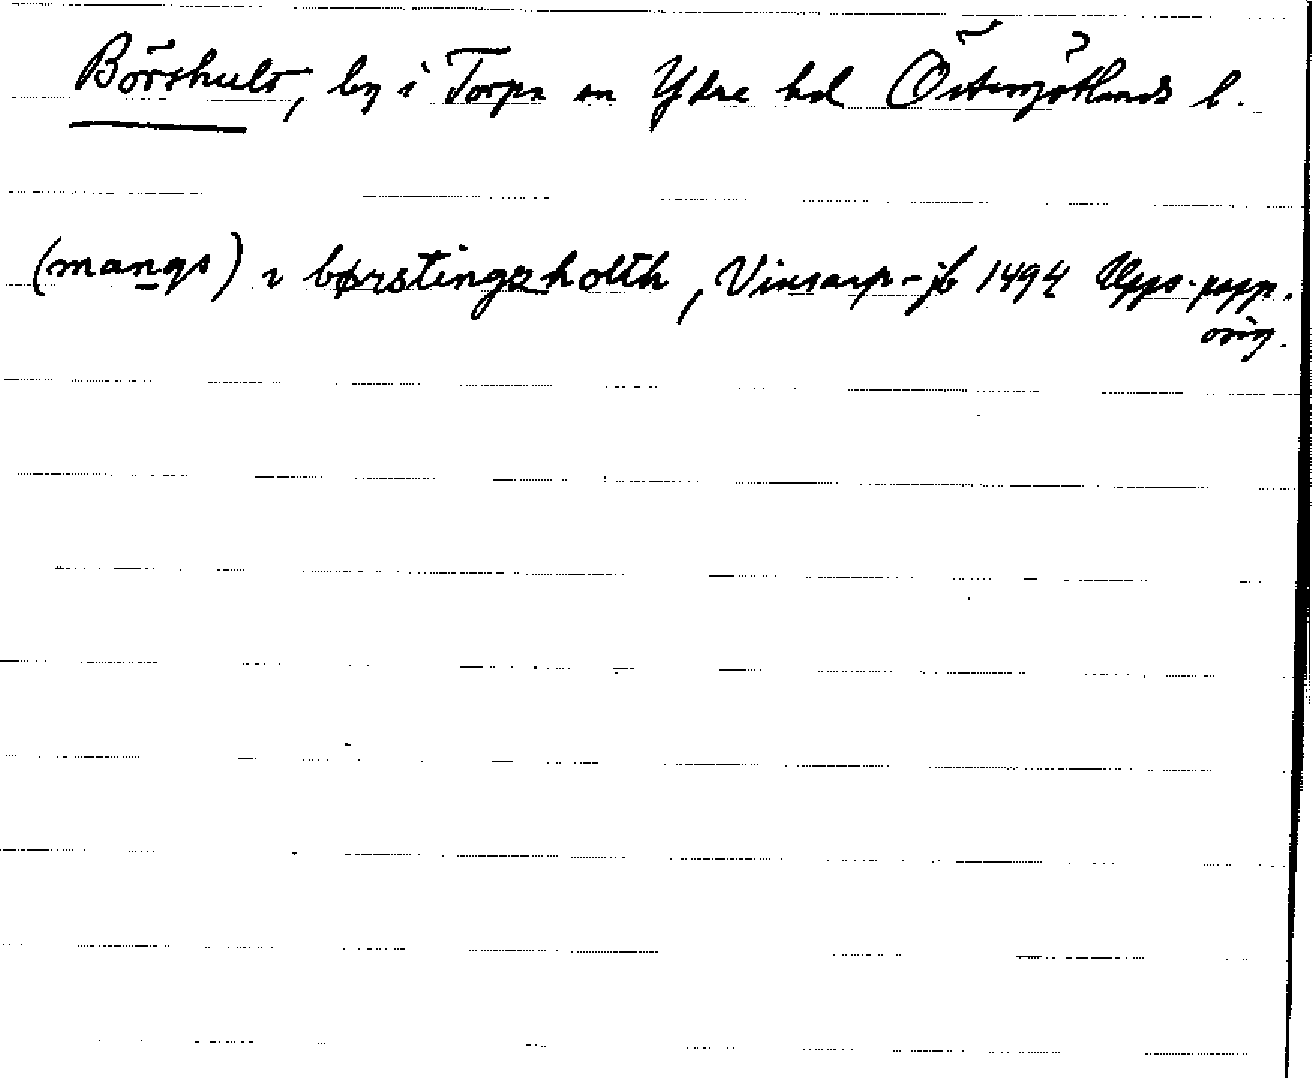 Börshult, by i Torpa sn Ydre hd Östergötlands l.
(mangs) i børstingxholth, Vinsarp-jb 1494 Upps. papp.
orig.